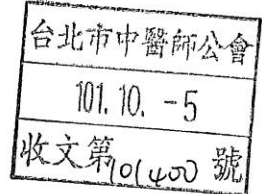 台北市中醫師公會
101. 10. -5
收文第101400號